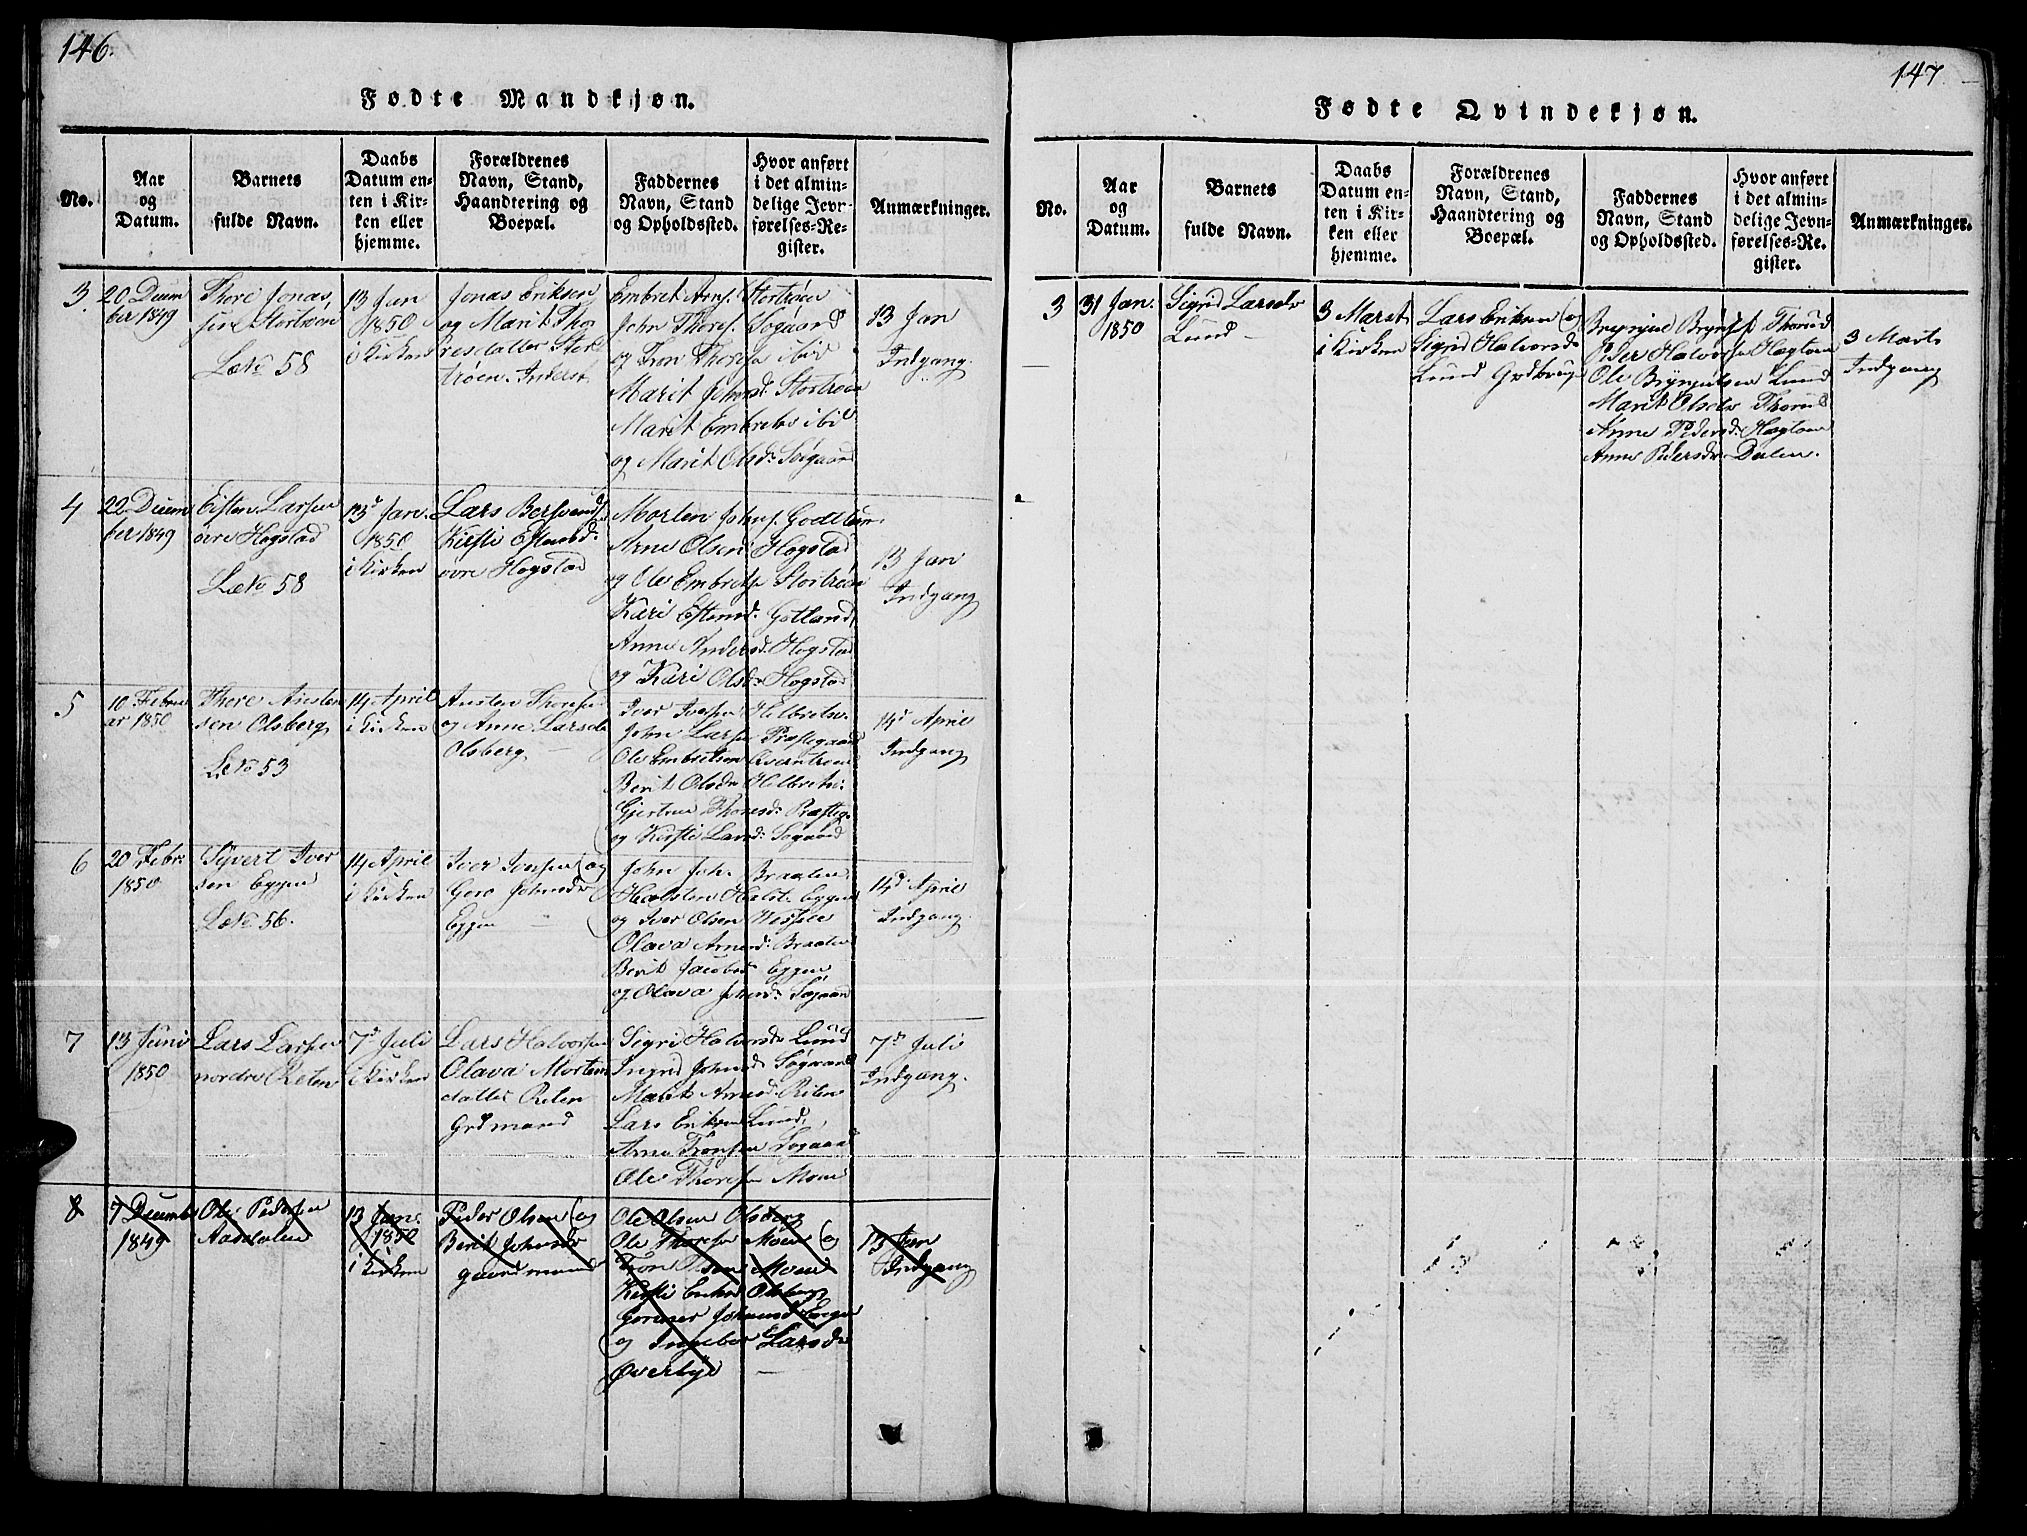 146.
Fødte Mandkjøn.
No.
Aar
og
Datum.
Barnets
fulde Navn.
Daabs
Datum en-
ten i Kir-
ken eller
hjemme.
Forældrenes
Navn, Stand,
Haandtering og
Boepæl.
Faddernes
Navn, Stand
og Opholdssted.
Hvor anført
i det almin-
delige Jevn-
førelses-Re-
gister.
Anmærkninger.
3
20 Decem
ber 1849
Thore Jonas,
Stortrøen
L. No 58
13 Jan
1850
i Kirken
Jonas Eriksen
og Marit Tho
resdatter Stor
trøen. Inderst
Embret Arnf. Stortrøen
John Thoref. Søgaard
og Tron Thoresen ibid
Marit Johnsd. Stortrøen
Marit Embretsd ibid
og Marit Olsd. Søgaard
13 Jan
Indgang.
4
22 Decem
ber 1849
Eisten Larsen
øvre Hogstad
L. No 58
13d Jan.
1850
i Kirken
Lars Bersvends.
Kirsti Estensd.
øvre Hogstad
Morten Johnf. Godtland
Arne Olsen Hogstad
og Ole Embretsen Stortrøen
Kari Estensd. Gotland
Anne Andersd. Hogstad
og Kari Olsd. Hogstad
13 Jan
Indgang
5
10 Februar
ar 1850
Thore Austen
sen Olsberg
L. No 53
14 April
i Kirken
Austen Thoresen
og Anne Larsd.
Olsberg
Iver Iversen
John Larsen Præstegaard
Ole Embretsen
Berit Olsdr
Gjertrue Thoresd. Præsteg.
og Kirsti Larsd. Søgaard
14d April
Indgang
6
20 Febr.
1850
Syvert Iver
sen Eggen
L. No. 56.
14 April
i Kirken
Iver Iversen og
Goro Johnsdr
Eggen
John Joh. Braaten
Halsten Halst. Eggen
og Iver Olsen
Olava Arnesd. Braaten
Berit Jacobsd Eggen
og Olava Johnsd. Søgaard
14d April
Indgang
7
13 Juni
1850
Lars Larsen
nordre Reten
7d Juli
i Kirken
Lars Halvorsen
Olava Mortens
datter Reten
Grdmand
Sigri Halvorsdr Lund
Ingrid Johnsd. Søgaard
Marit Arnesd. Reten
Lars Eriksen Lund,
Arne Tronsen Søgaard
Ole Thoresen Moen
7d Juli
Indgang.
8
7 Decemb
1849
Ole Pedersen
Aasdalen
13 Jan.
1850
i Kirken
Peder Olsen og
Berit Johnsdr
gaardmand
Ole Olsen Olsberg
Ole Thoresen Moen og
Tron Olsen Moen
Kirsti Eriksd Olsberg
Johnsd Eggen
og Ingebor Larsd.
Øverbye
13 Jan
Indgang
147
Fødte Qvindekjøn.
No.
Aar
og
Datum.
Barnets
fulde Navn.
Daabs
Datum en-
ten i Kir-
ken eller
hjemme.
Forældrenes
Navn, Stand,
Haandtering og
Boepæl.
Faddernes
Navn, Stand
og Opholdssted.
Hvor anført
i det almin-
delige Jevn-
førelses-Re-
gister.
Anmærkninger.
3
31 Jan.
1850
Sigrid Larsdr
Lund
3 Marts
i Kirken
Lars Eriksen og
Sigrid Halvorsd.
Lund Grdbrug
Brynjul Brynj. Thorud
Peder Halvorsen Hagtom
Ole Brynjulsen Lund
Marit Olsdr Thorud
Anne Pedersd. Hagtom
Anne Pedersdr. Dalen.
3 Marts
Indgang